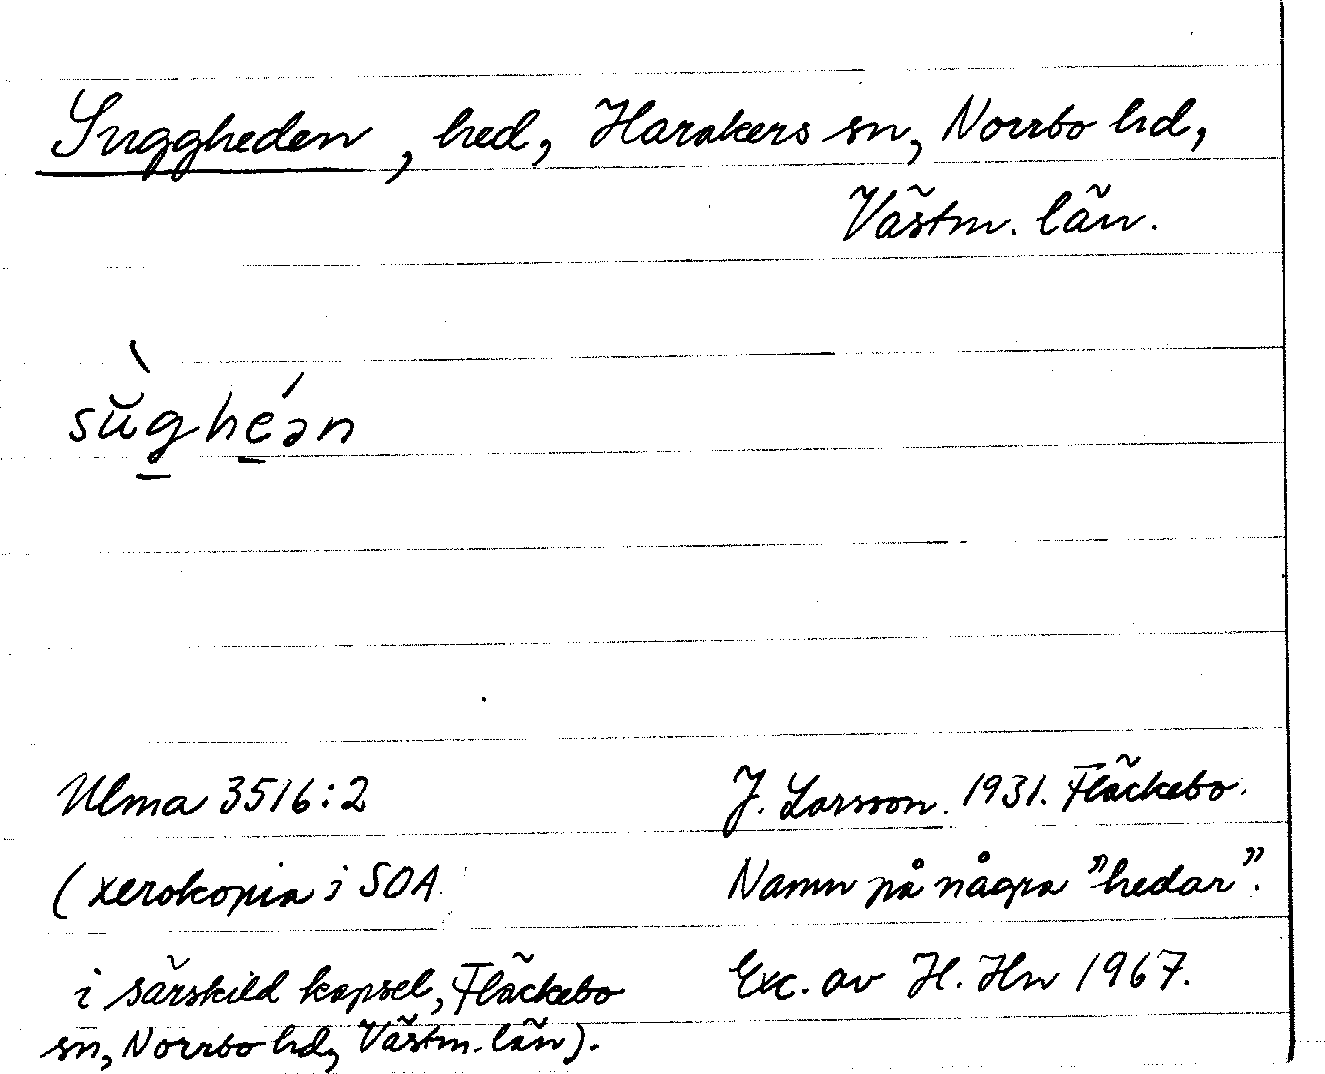 Suggheden, hed, Harakers sn, Norrbo hd,
Västm. län.
sùghéən
Ulma 3516:2
(xerokopia i SOA
i särskild kapsel, Fläckebo
sn, Norrbo hd, Västm. län).
J. Larsson. 1931. Fläckebo.
Namn på några "hedar".
Exc. av H. Hn 1967.